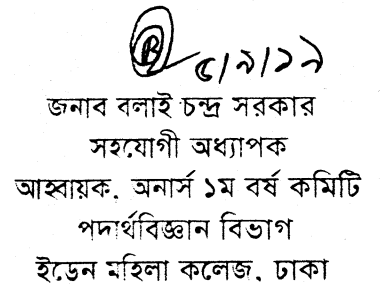 ৫/৯/১৯
জনাব বলাই চন্দ্র সরকার
সহযোগী অধ্যাপক
আহ্বায়ক, অনার্স ১ম বর্ষ কমিটি
পদার্থবিজ্ঞান বিভাগ
ইডেন মহিলা কলেজ, ঢাকা